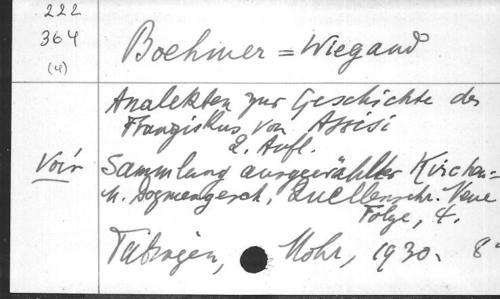 222
364
(4)
Boehmer = Wiegand
Analekten zur Geschichte des
Franziskus von Assisi
2. Aufl.
Voir
Sammlung ausgewählter Kirchen=
u. dogmengesch. Quellenschr. Neue
Folge, 4.
Tübingen, Mohr, 1930. 8°